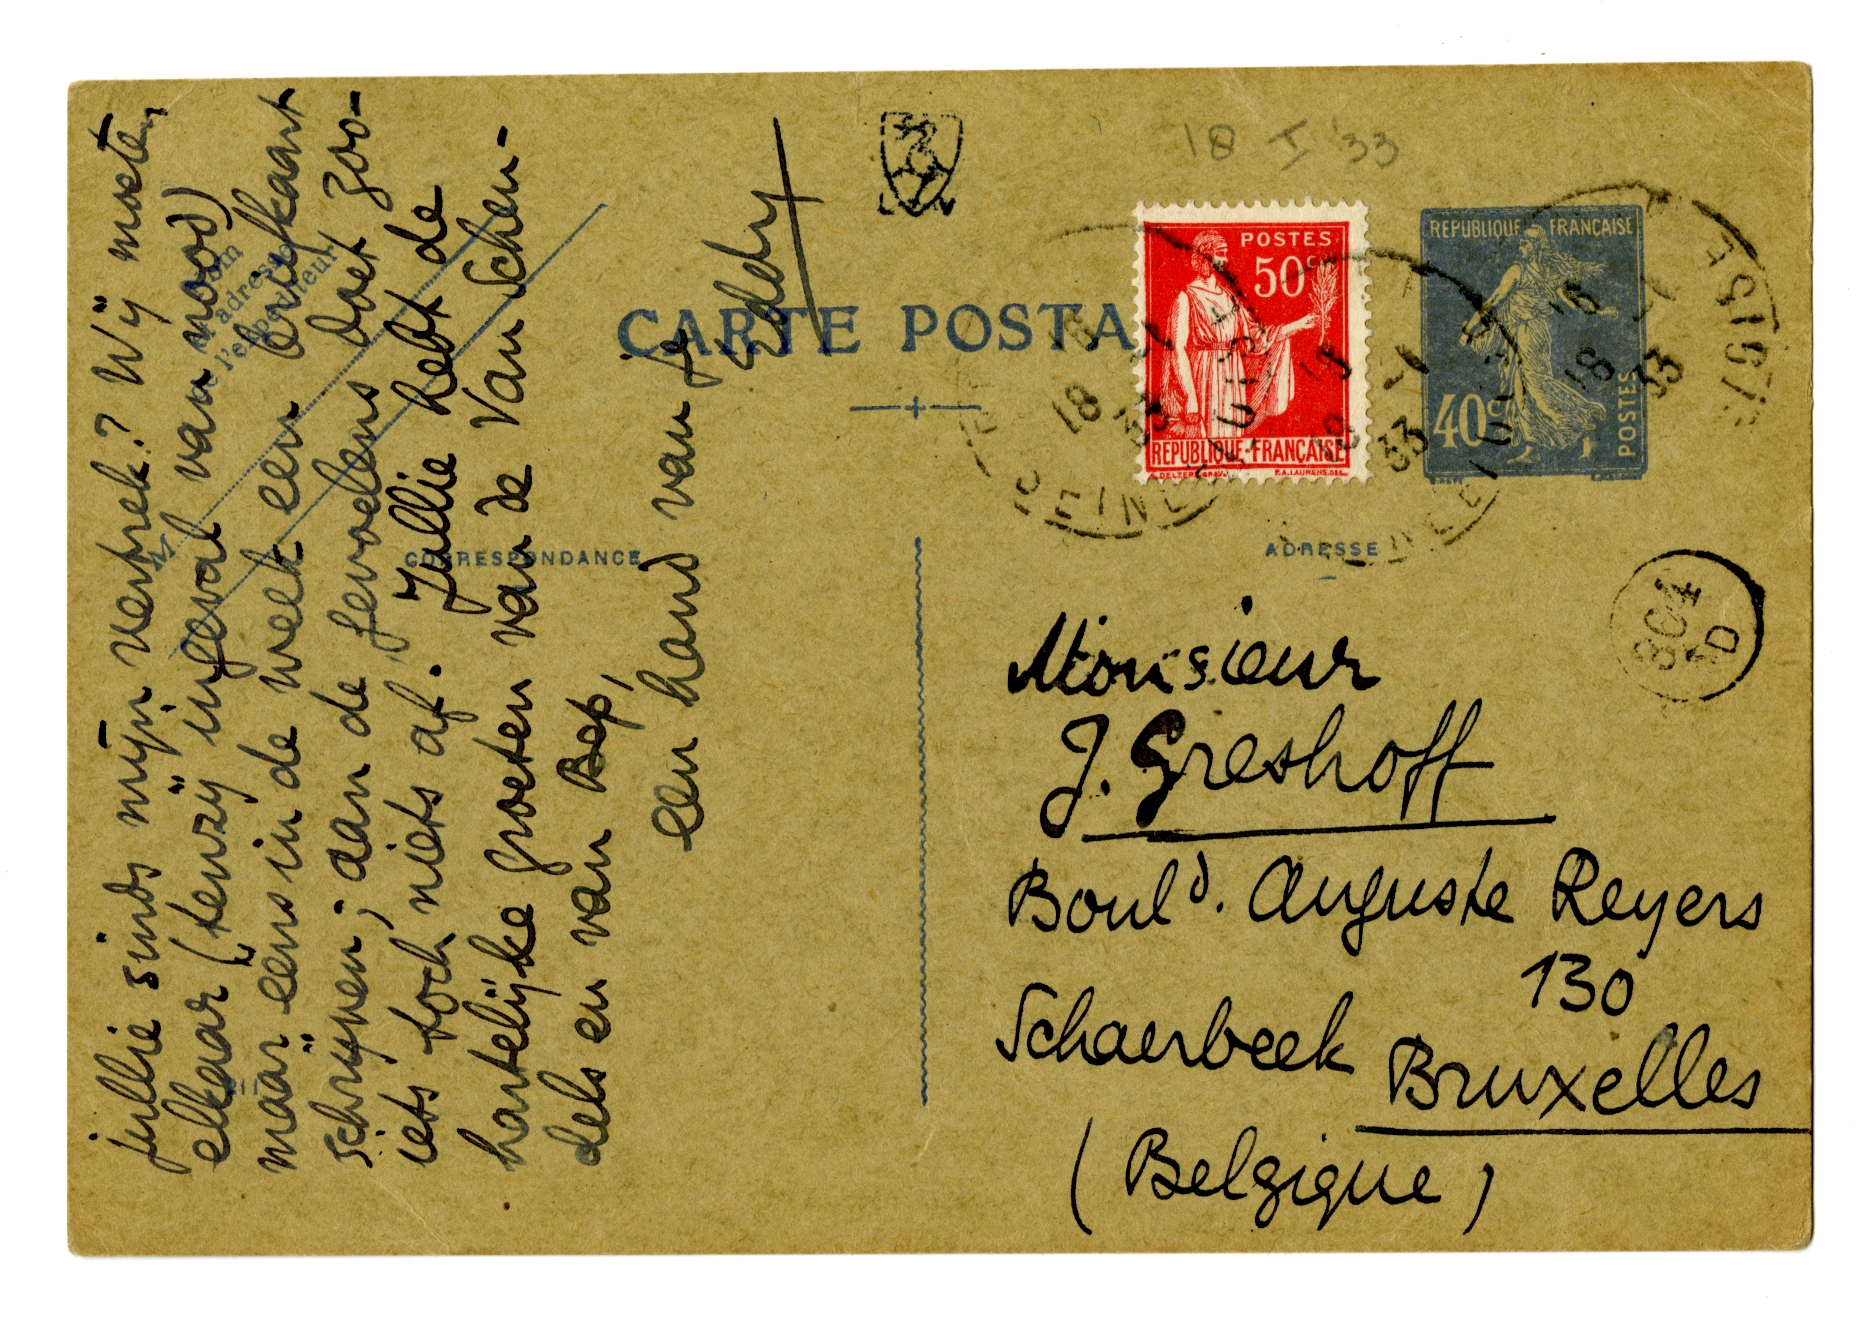 jullie sinds mijn vertrek? Wij moeten
elkaar (tenzij ingeval van nood)
maar eens in de week een briefkaart
schrijven; dan de gevoelens doet zoo-
iets toch niets af. Jullie hebt de
hartelijke groeten van de Van Schen-
dels en van Bep,
een hand van je
Eddy
Nom
et adresse
de l'expéditeur
M
CARTE POSTA
CORRESPONDANCE
18 I '33
POSTES
50c
REPUBLIQUE-FRANÇAISE
REPUBLIQUE FRANÇAISE
40c
POSTES
18
33
18
33
18
33
ADRESSE
Monsieur
J. Greshoff
Bould. Auguste Reyers
130
Schaerbeek Bruxelles
(Belgique)